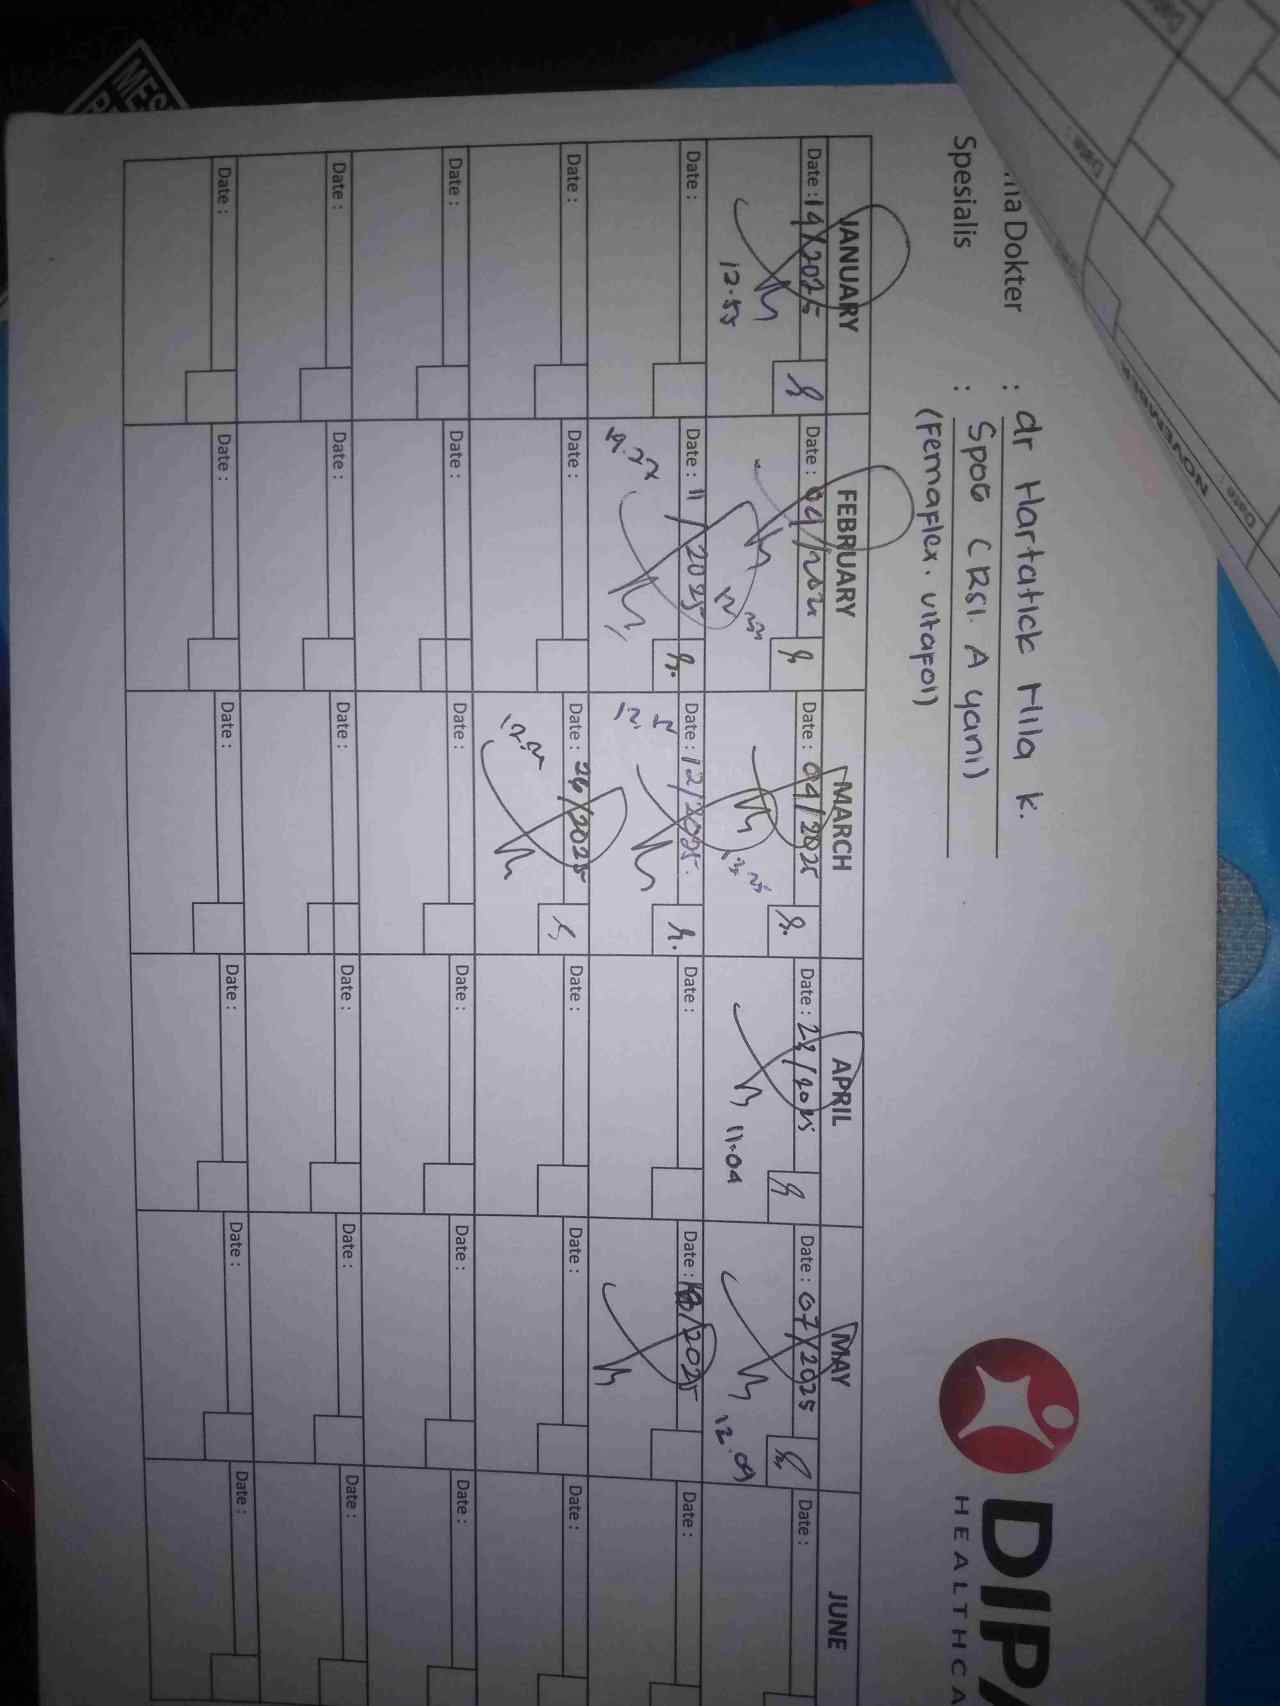 DIPA
HEALTHCA
ma Dokter : dr Hartatick Mila k.
Spesialis : SpOG (RSI. A yani)
(Femaflex. vitafol)
JANUARY FEBRUARY MARCH APRIL MAY JUNE
Date : 14/2025 Date : 04/2025 Date : 04/2025 Date : 28/2025 Date : 07/2025 Date :
12.55 11.04 12.09
Date : Date : 11/2025 Date : 12/2025. Date : Date : /2025 Date :
19.27
Date : Date : Date : 26/2025 Date : Date : Date :
Date : Date : Date : Date : Date : Date :
Date : Date : Date : Date : Date : Date :
Date : Date : Date : Date : Date : Date :
NOVEMBER
Date :
Date :